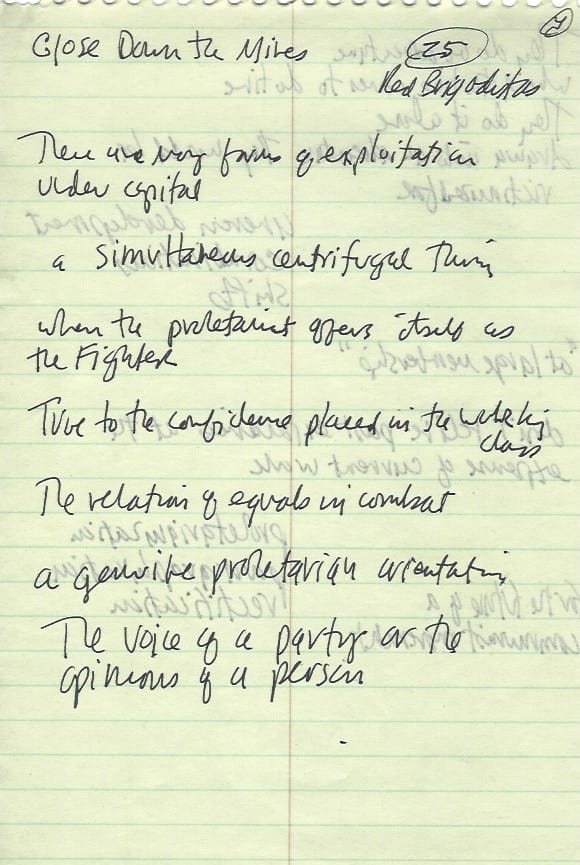 Close Down the Mines
25
Red Brigadistas
There are many forms of exploitation
under capital
a simultaneous centrifugal thing
when the proletariat offers itself as
the Fighter
True to the confidence placed in the working
class
The relation of equals in combat
a genuine proletarian orientation
The voice of a party or the
opinions of a person